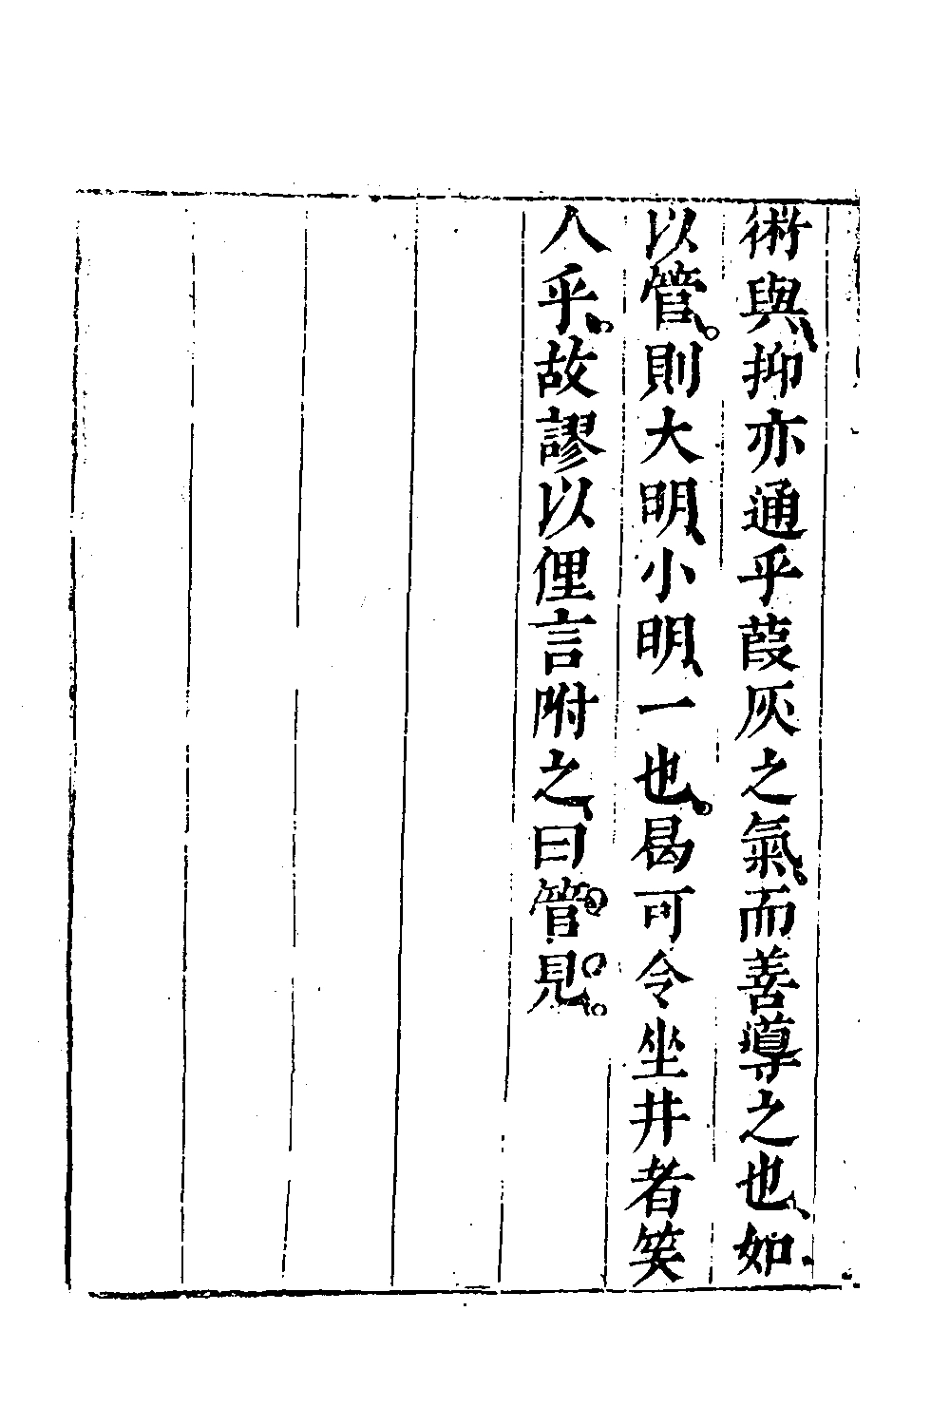 術與、抑亦通乎葭灰之氣。而善導之也、如
以管。則大明、小明、一也。曷可令坐井者笑
人乎。故謬以俚言附之、曰管見。